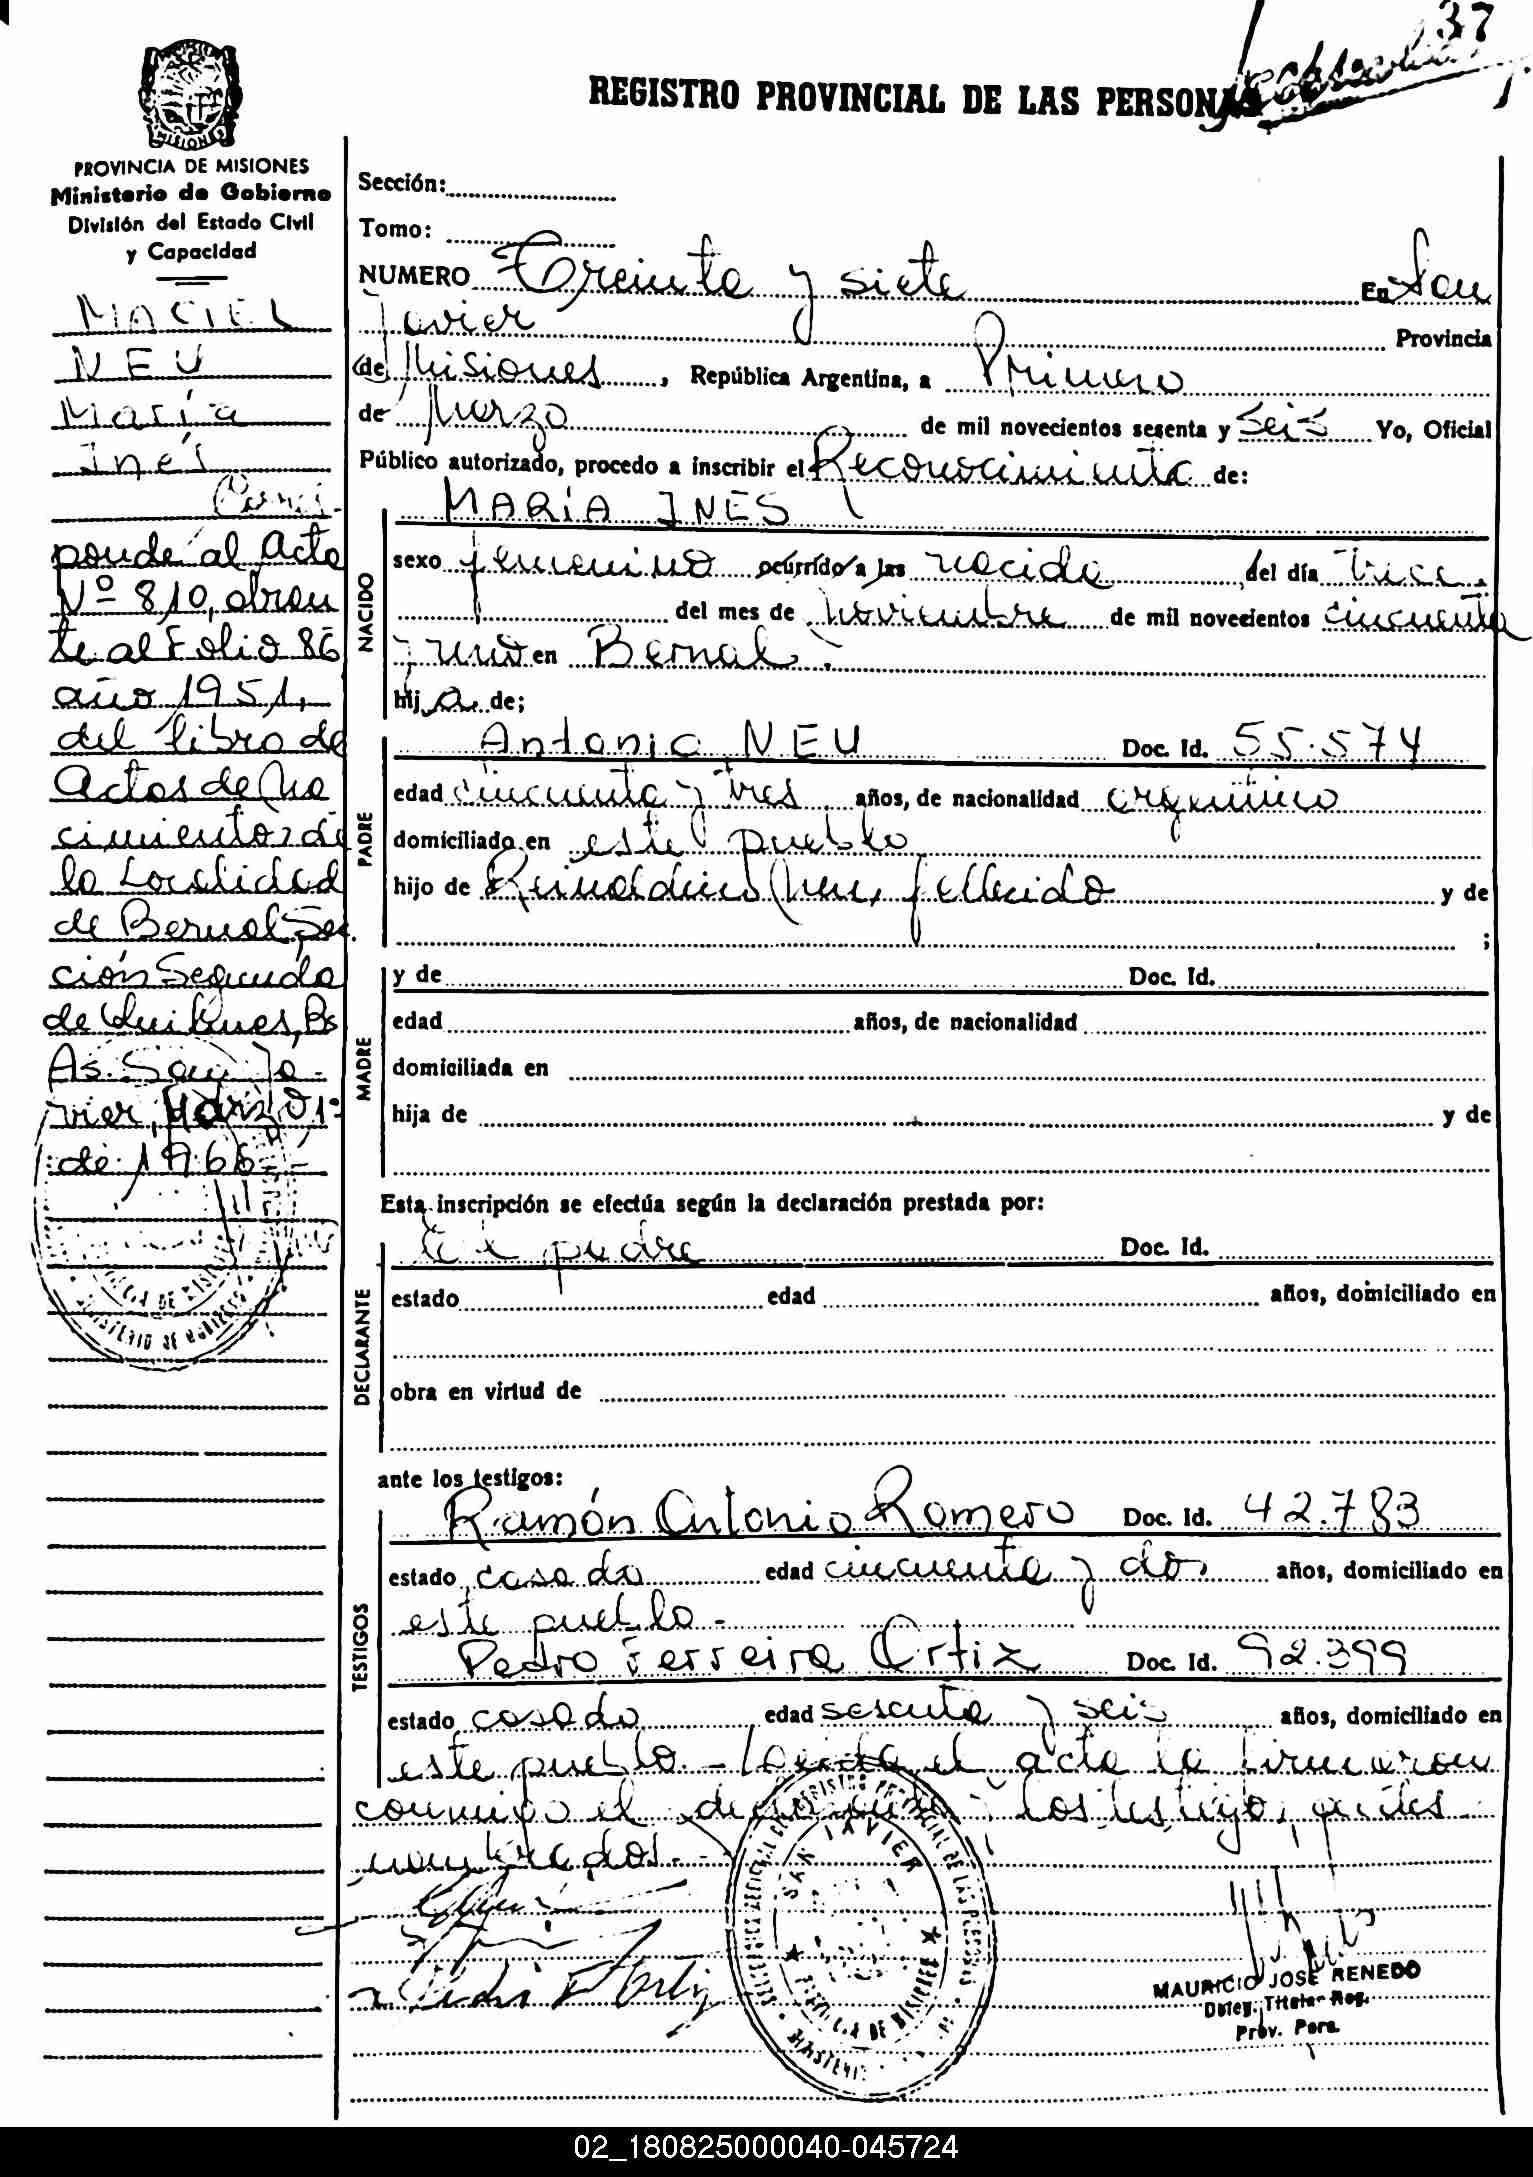 37
REGISTRO PROVINCIAL DE LAS PERSONAS
MISIONES
PROVINCIA DE MISIONES
Ministerio de Gobierno
División del Estado Civil
y Capacidad
MACIEL
NEU
María
Inés
Corres-
ponde al Acta
Nº 810, obran
te al Folio 86
año 1951,
del libro de
Actas de Na
cimientos de
la Localidad
de Bernal, Sec
ción Segunda
de Quilmes, Bs
As. San Ja-
vier, Marzo 1º
de 1966.-
Sección:
Tomo:
NUMERO Treinta y siete En San
Javier Provincia
de Misiones, República Argentina, a Primero
de Marzo de mil novecientos sesenta y seis Yo, Oficial
Público autorizado, procedo a inscribir el Reconocimiento de:
NACIDO
MARÍA INES
sexo femenino ocurrido a las nacida del día trece
del mes de noviembre de mil novecientos cincuenta
y uno en Bernal.
hija de;
PADRE
Antonio NEU Doc. Id. 55.574
edad cincuenta y tres años, de nacionalidad argentino
domiciliado en este pueblo
hijo de Reinaldino Neu, fallecido y de
;
MADRE
y de Doc. Id.
edad años, de nacionalidad
domiciliada en
hija de y de
Esta inscripción se efectúa según la declaración prestada por:
DECLARANTE
El padre Doc. Id.
estado edad años, domiciliado en
obra en virtud de
ante los testigos:
TESTIGOS
Ramón Antonio Romero Doc. Id. 42.783
estado casado edad cincuenta y dos años, domiciliado en
este pueblo.-
Pedro Ferreira Ortiz Doc. Id. 92.399
estado casado edad sesenta y seis años, domiciliado en
este pueblo.- Leída el acta la firmaron
conmigo el declarante y los testigos precitados
nombrados.-
SAN JAVIER
MAURICIO JOSE RENEDO
Deleg. Titular Reg.
Prov. Pers.
02_180825000040-045724